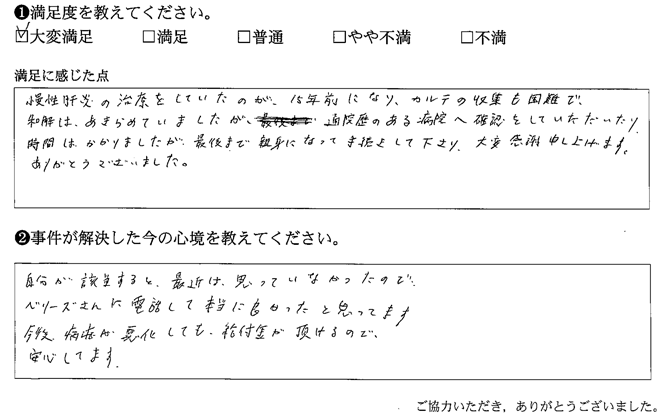 ❶満足度を教えてください。
☑大変満足 □満足 □普通 □やや不満 □不満
満足に感じた点
慢性肝炎の治療をしていたのが、15年前になり、カルテの収集も困難で、
和解は、あきらめていましたが、通院歴のある病院へ確認をしていただいたり
時間は、かかりましたが、最後まで親身になって手続きして下さり、大変感謝申し上げます。
ありがとうございました。
❷事件が解決した今の心境を教えてください。
自分が該当すると、最近は、思っていなかったので、
ベリーズさんに電話して本当に良かったと思ってます
今後、病症が悪化しても、給付金が頂けるので、
安心してます。
ご協力いただき，ありがとうございました。